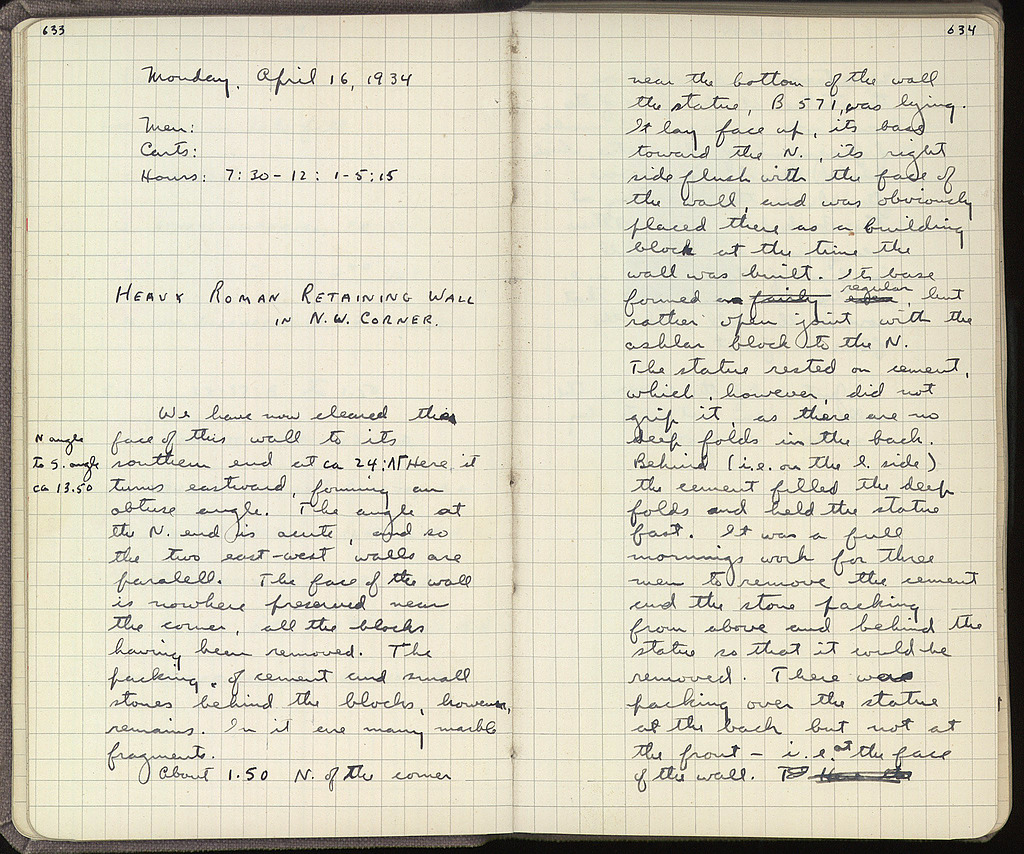 633
Monday, April 16, 1934
Men:
Carts:
Hours: 7:30-12: 1-5:15
HEAVY ROMAN RETAINING WALL
IN N.W. CORNER.
We have now cleared the
N angle
to S. angle
ca 13.50
face of this wall to its
southern end at ca 24: Here it
turns eastward, forming an
obtuse angle. The angle at
the N. end is acute, and so
the two east-west walls are
paralell. The face of the wall
is nowhere preserved near
the corner, all the blocks
having been removed. The
packing, of cement and small
stones behind the blocks, however,
remains. In it are many marble
fragments.
About 1.50 N. of the corner
634
near the bottom of the wall
the statue, B 571, was lying.
It lay face up, its base
toward the N., its right
side flush with the face of
the wall, and was obviously
placed there as a building
block at the time the
wall was built. Its base
formed a fairly regular, but
rather open joint with the
ashlar block to the N.
The statue rested on cement,
which, however, did not
grip it, as there are no
deep folds in the back.
Behind (i.e. on the l. side)
the cement filled the deep
folds and held the statue
fast. It was a full
mornings work for three
men to remove the cement
and the stone packing
from above and behind the
statue so that it could be
removed. There was
packing over the statue
at the back but not at
the front - i.e. at the face
of the wall.